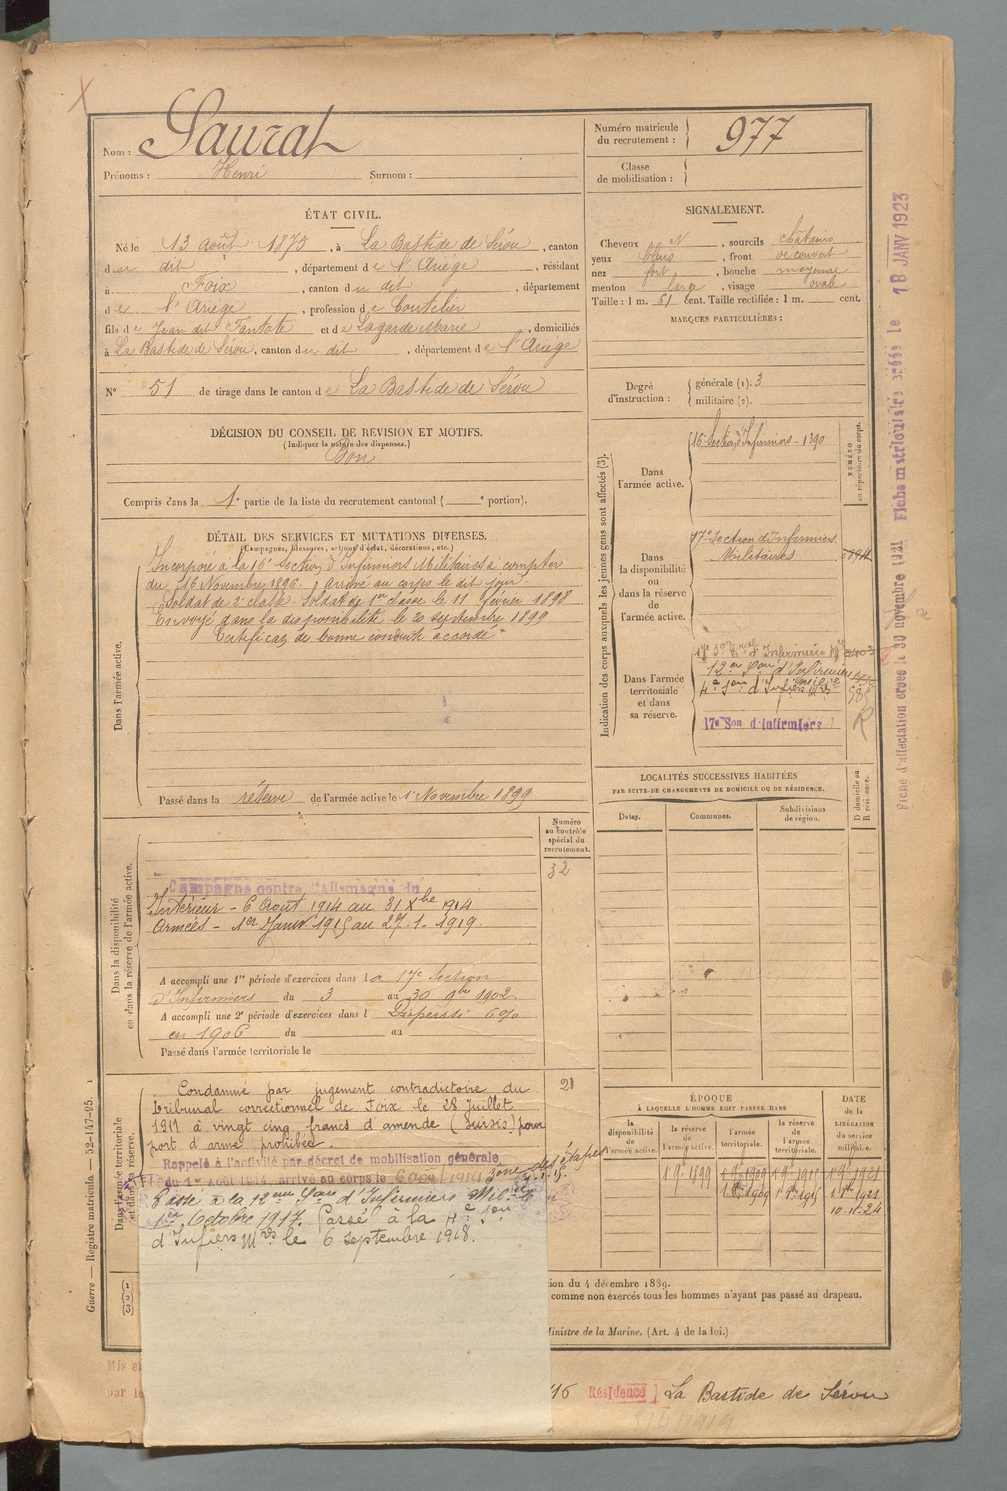 Nom : Saurat
Prénoms : Henri Surnom :
Numéro matricule du recrutement : 977
Classe de mobilisation :
ÉTAT CIVIL.
Né le 13 août 1875, à La Bastide de Sérou, canton
du dit, département de l'Ariège, résidant
à Foix, canton du dit, département
de l'Ariège, profession de Coutelier
fils de Jean dit Tantate et de Lagarde Marie, domiciliés
à La Bastide de Sérou, canton du dit, département de l'Ariège
N° 51 de tirage dans le canton de La Bastide de Sérou
DÉCISION DU CONSEIL DE REVISION ET MOTIFS.
(Indiquer la nature des dispenses.)
Bon
Compris dans la 1e partie de la liste du recrutement cantonal ( e portion).
SIGNALEMENT.
Cheveux N, sourcils châtains
yeux bleus, front découvert
nez fort, bouche moyenne
menton large, visage ovale
Taille : 1 m. 61 cent. Taille rectifiée : 1 m. cent.
MARQUES PARTICULIÈRES :
Degré d'instruction : générale (1). 3
militaire (2).
DÉTAIL DES SERVICES ET MUTATIONS DIVERSES.
(Campagnes, blessures, actions d'éclat, décorations, etc.)
Dans l'armée active.
Incorporé à la 16e Section d'Infirmiers Militaires à compter
du 16 Novembre 1896. Arrivé au corps le dit jour
Soldat de 2e classe. Soldat de 1re classe le 11 février 1898
Envoyé dans la disponibilité le 20 septembre 1899
Certificat de bonne conduite accordé
Passé dans la réserve de l'armée active le 1 Novembre 1899
Indication des corps auxquels les jeunes gens sont affectés (3).
NUMÉRO au répertoire du corps.
Dans l'armée active.
16e Section d'Infirmiers - 1390
Dans la disponibilité ou dans la réserve de l'armée active.
17e Section d'Infirmiers
Militaires
Dans l'armée territoriale et dans sa réserve.
12e Son d'Infirmiers
4e Son d'Infiers Mres
17e Son d'infirmiers
LOCALITÉS SUCCESSIVES HABITÉES
PAR SUITE DE CHANGEMENTS DE DOMICILE OU DE RÉSIDENCE.
Dates. Communes. Subdivisions de région. D domicile ou R résidence.
Dans la disponibilité ou dans la réserve de l'armée active.
Numéro au contrôle spécial du recrutement.
32
Campagne contre l'Allemagne du
Intérieur - 6 Août 1914 au 31 Xbre 1914
Armées - 1er Janv. 1915 au 27. 1. 1919.
A accompli une 1re période d'exercices dans la 17e Section
d'Infirmiers du 3 au 30 9bre 1902.
A accompli une 2e période d'exercices dans l Dispensé 6%
en 1906 du au
Passé dans l'armée territoriale le
21
Condamné par jugement contradictoire du
tribunal correctionnel de Foix le 28 Juillet
1911 à vingt cinq francs d'amende (Sursis) pour
port d'arme prohibée.
Rappelé à l'activité par décret de mobilisation générale
du 1er Août 1914, arrivé au corps le 6 août 1914
zone des étapes
Passé à la 12eme Son d'Infirmiers Mil. le
1er Octobre 1917. Passé à la 4e Son
d'Infiers Mres le 6 septembre 1918.
ÉPOQUE
À LAQUELLE L'HOMME DOIT PASSER DANS
la disponibilité de l'armée active. la réserve de l'armée active. l'armée territoriale. la réserve de l'armée territoriale.
DATE de la LIBÉRATION du service militaire.
1 9e 1899 1 9e 1909 1 9e 1915 1 9e 1921
1 8e 1909 1 8e 1915 1 8e 1921
10.11.24
tion du 4 décembre 1889.
comme non exercés tous les hommes n'ayant pas passé au drapeau.
Ministre de la Marine. (Art. 4 de la loi.)
Résidence La Bastide de Sérou
Guerre — Registre matricule. — 52-147-95.
Fiche d'affectation créée le 30 novembre 1921 Fiche matriculaire créée le 18 JANV 1923